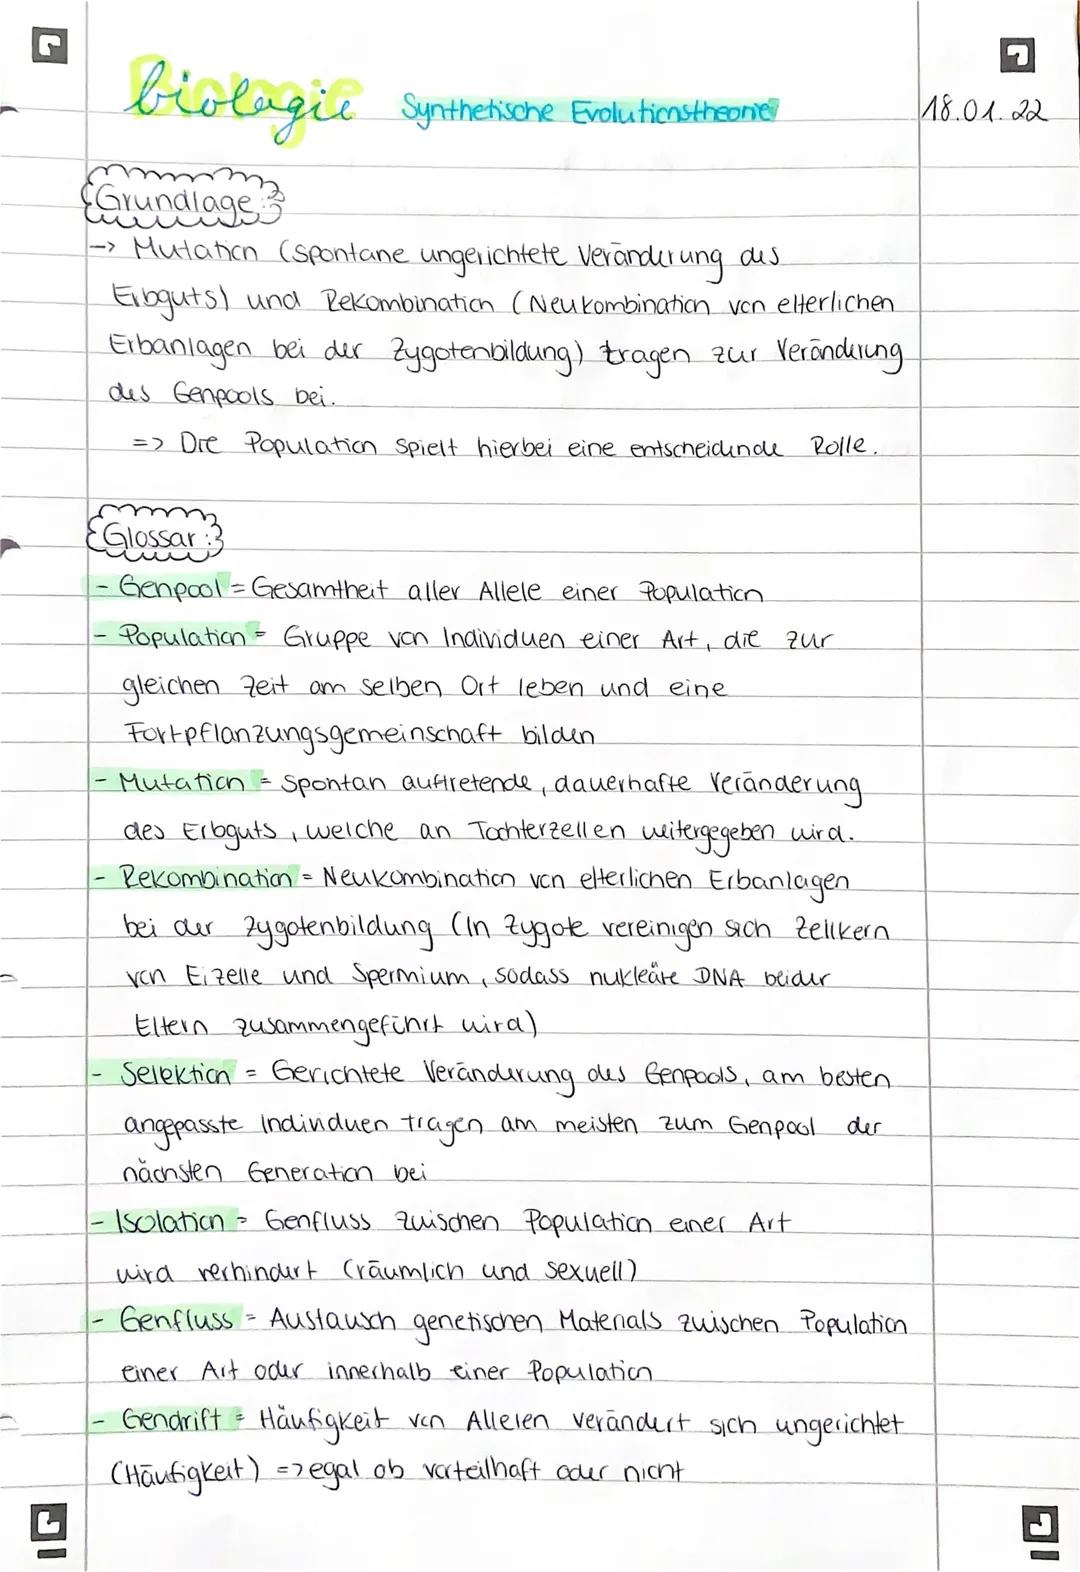 biologie Synthetische Evolutionstheorie 18.01.22
Grundlage:
-> Mutation (spontane ungerichtete Veränderung des
Erbguts) und Rekombination (Neukombination von elterlichen
Erbanlagen bei der Zygotenbildung) tragen zur Veränderung
des Genpools bei.
=> Die Population spielt hierbei eine entscheidende Rolle.
Glossar:
- Genpool = Gesamtheit aller Allele einer Population
- Population = Gruppe von Individuen einer Art, die zur
gleichen Zeit am selben Ort leben und eine
Fortpflanzungsgemeinschaft bilden
- Mutation = Spontan auftretende, dauerhafte Veränderung
des Erbguts, welche an Tochterzellen weitergegeben wird.
- Rekombination = Neukombination von elterlichen Erbanlagen
bei der Zygotenbildung (In Zygote vereinigen sich Zellkern
von Eizelle und Spermium, sodass nukleäre DNA beider
Eltern zusammengeführt wird)
- Selektion = Gerichtete Veränderung des Genpools, am besten
angepasste Individuen tragen am meisten zum Genpool der
nächsten Generation bei
- Isolation = Genfluss zwischen Population einer Art
wird verhindert (räumlich und sexuell)
- Genfluss = Austausch genetischen Materials zwischen Population
einer Art oder innerhalb einer Population
- Gendrift = Häufigkeit von Allelen verändert sich ungerichtet
(Häufigkeit) => egal ob vorteilhaft oder nicht